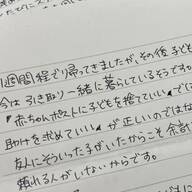 1週間程で帰ってきましたが、その後子ども
今は引き取り一緒に暮らしているそうです。
『赤ちゃんポストに子どもを捨てていい』で
助けを求めていい』が正しいのではな
友人にそういった子がいたからこそ余計
頼れる人がいないからです。